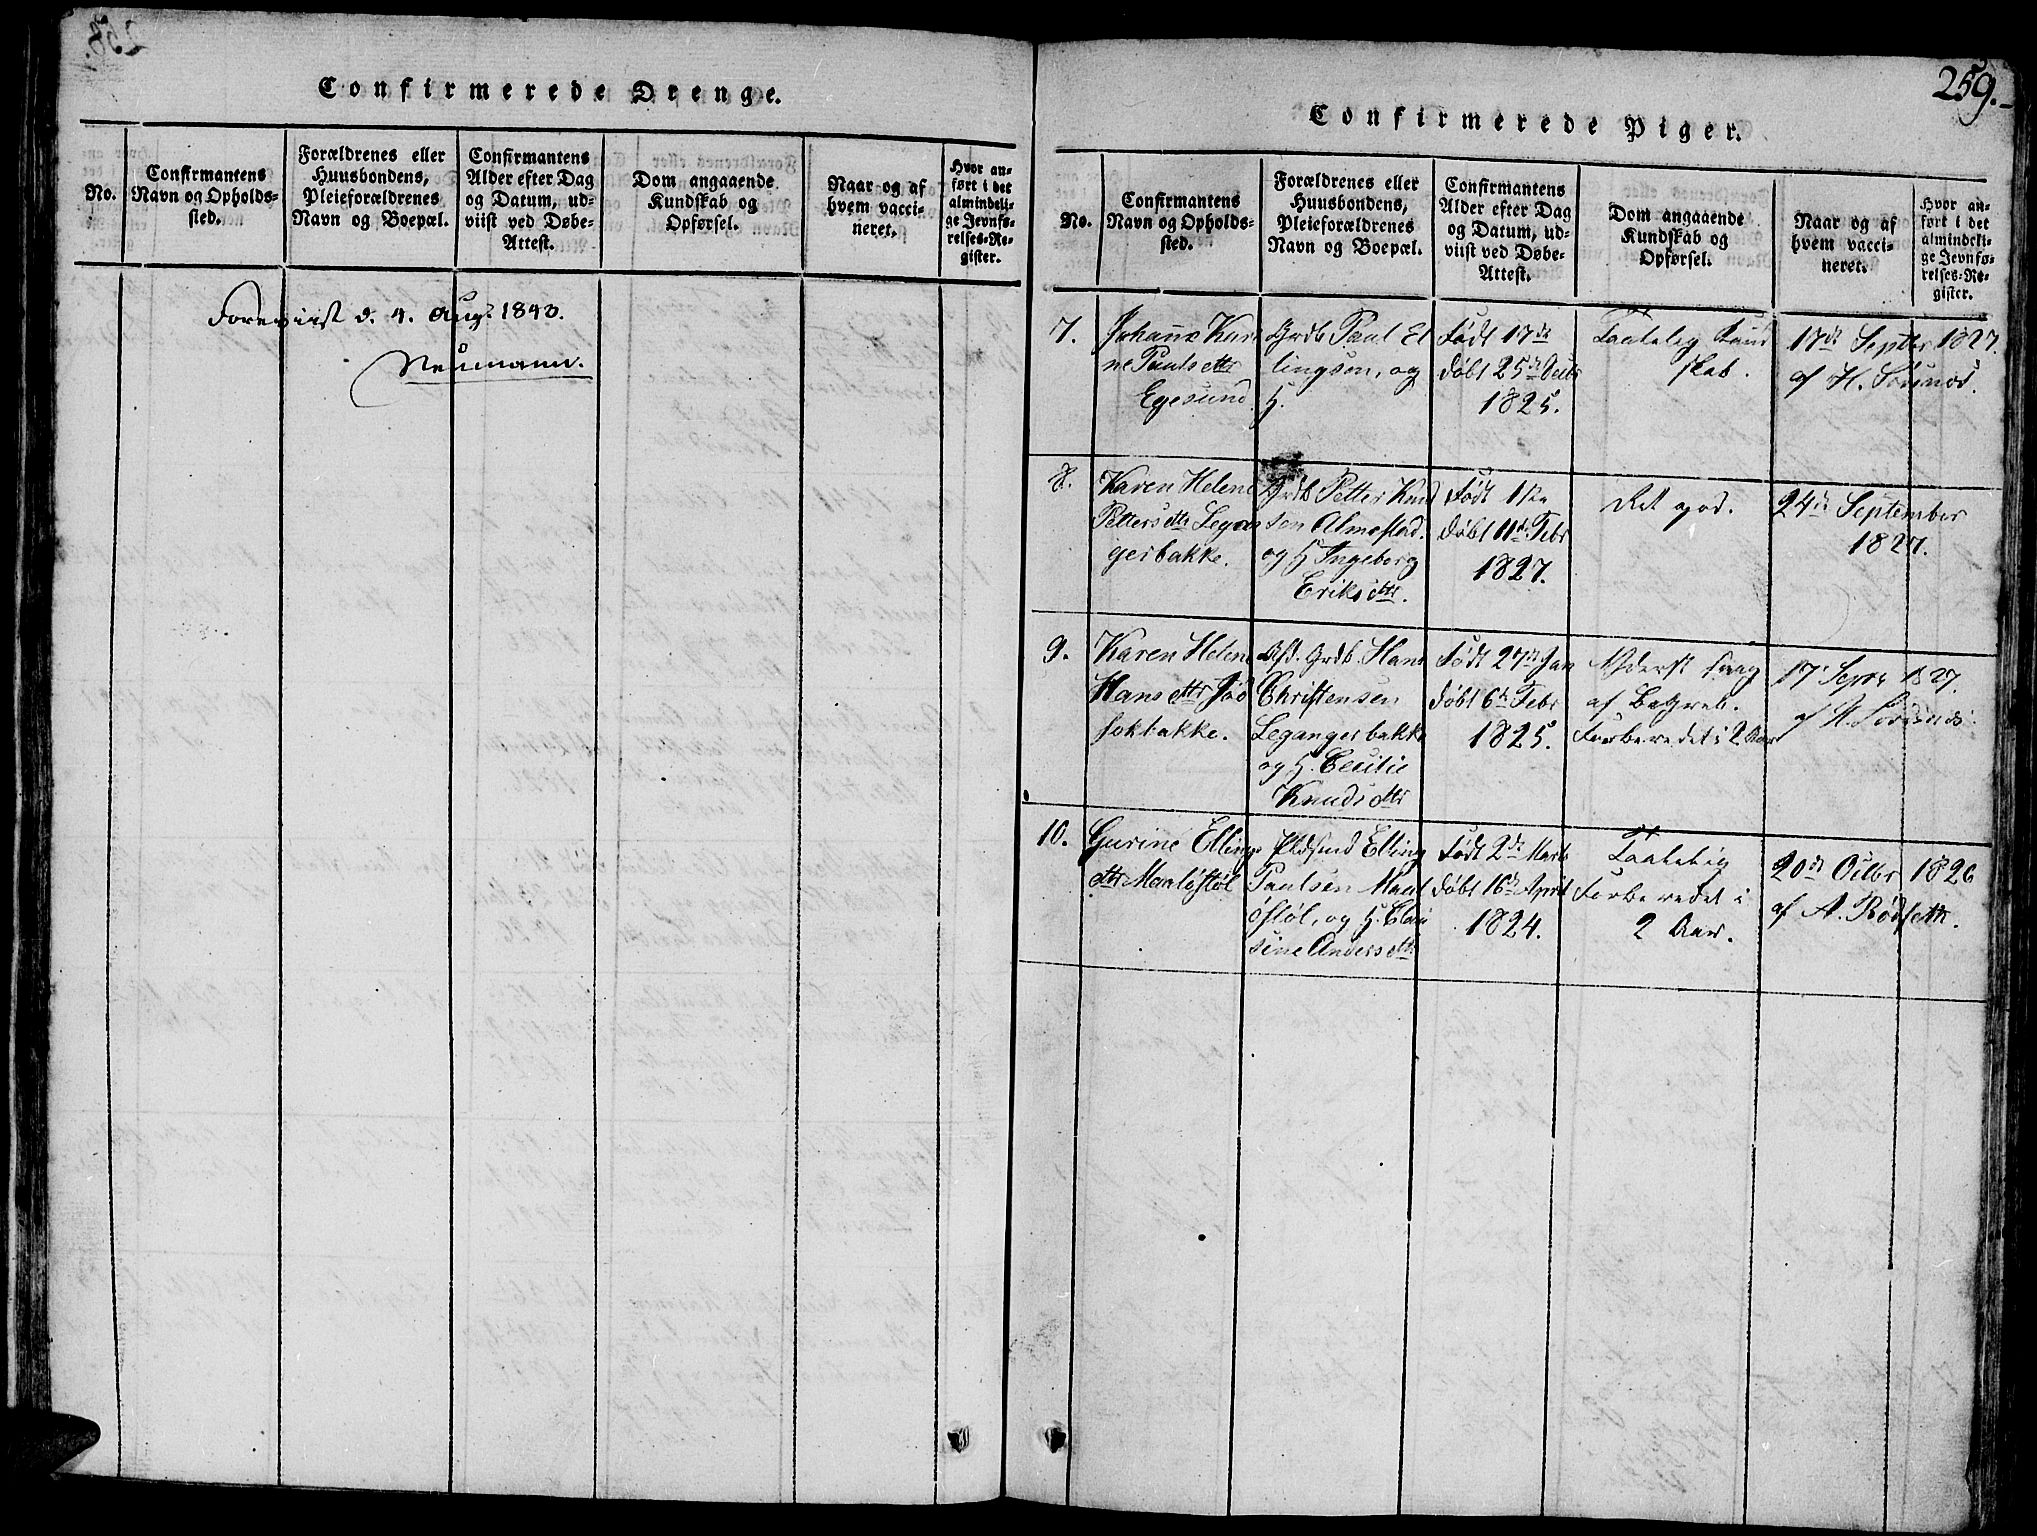 Confirmerede Drenge.
No.
Confirmantens
Navn og Opholds-
sted.
Forældrenes eller
Huusbondens,
Pleieforældrenes
Navn og Boepæl.
Confirmantens
Alder efter Dag
og Datum, ud-
viist ved Døbe-
Attest.
Dom angaaende
Kundskab og
Opførsel.
Naar og af
hvem vacci-
neret.
Hvor an-
ført i det
almindeli-
ge Jevnfø-
relses-Re-
gister.
Foreviist d. 4. Aug. 1843.
Neumann.
259.
Confirmerede Piger.
No.
Confirmantens
Navn og Opholds-
sted.
Forældrenes eller
Huusbondens,
Pleieforældrenes
Navn og Boepæl.
Confirmantens
Alder efter Dag
og Datum, ud-
viist ved Døbe-
Attest.
Dom angaaende
Kundskab og
Opførsel.
Naar og af
hvem vacci-
neret.
Hvor an-
ført i det
almindeli-
ge Jevnfø-
relses-Re-
gister.
7.
Johanne Kari
ne Pauls dttr
Egesund.
Grdb. Paul El
lingsen, og
H.
Født 17de
døbt 25de Octbr
1825.
Taalelig Kund
skab.
17de Septbr 1827.
af H.
8.
Karen Helene
Petters dttr Legan
gerbakke.
Grdb. Petter Knud
sen Almestad.
og H. Ingeborg
Eriks dttr.
Født
døbt 11de Febr
1827.
Ret god.
24de September
1827.
9.
Karen Helene
Hans dttr
Grdb. Hans
Christensen
Leganger bakke
og H. Cecilie
Knuds dttr
Født 27de Jan
døbt 6te Febr
1825.
Yderst svag
af Begreb.
Forberedet i 2 Aar
17 Septr 1827.
af
10.
Gurine Ellings
dttr Maaløstøl
Huusmd Elling
Paulsen Maal
østøl, og H.
sine Anders dttr
Født 2de Marts
døbt 16de April
1824.
Taalelig
Forberedet i
2 Aar.
20de Octbr 1826
af A. Rødseth.